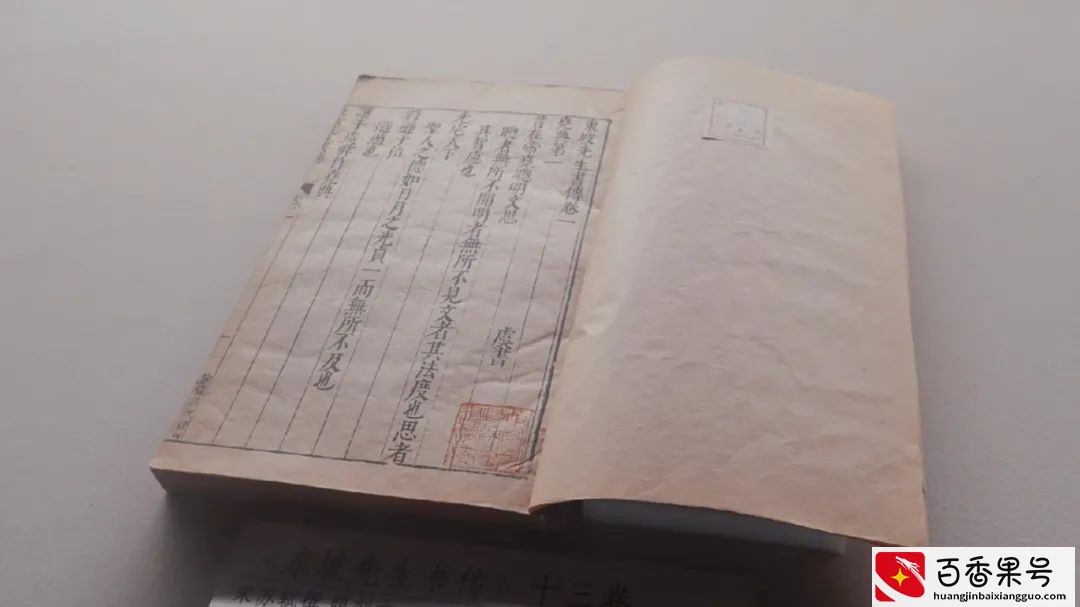 東坡先生書傳卷一
堯典第一 虞書
昔在帝堯聰明文思
聰者無所不聞明者無所不見文者其法度也思者
其智慮也
光宅天下
聖人之德如日月之光貞一而無所不及也
將遜于位
遜遁也
讓于虞舜作堯典
《东坡先生书传》十三卷
宋苏轼撰 明刻
百香果号
huangjinbaixiangguo.com